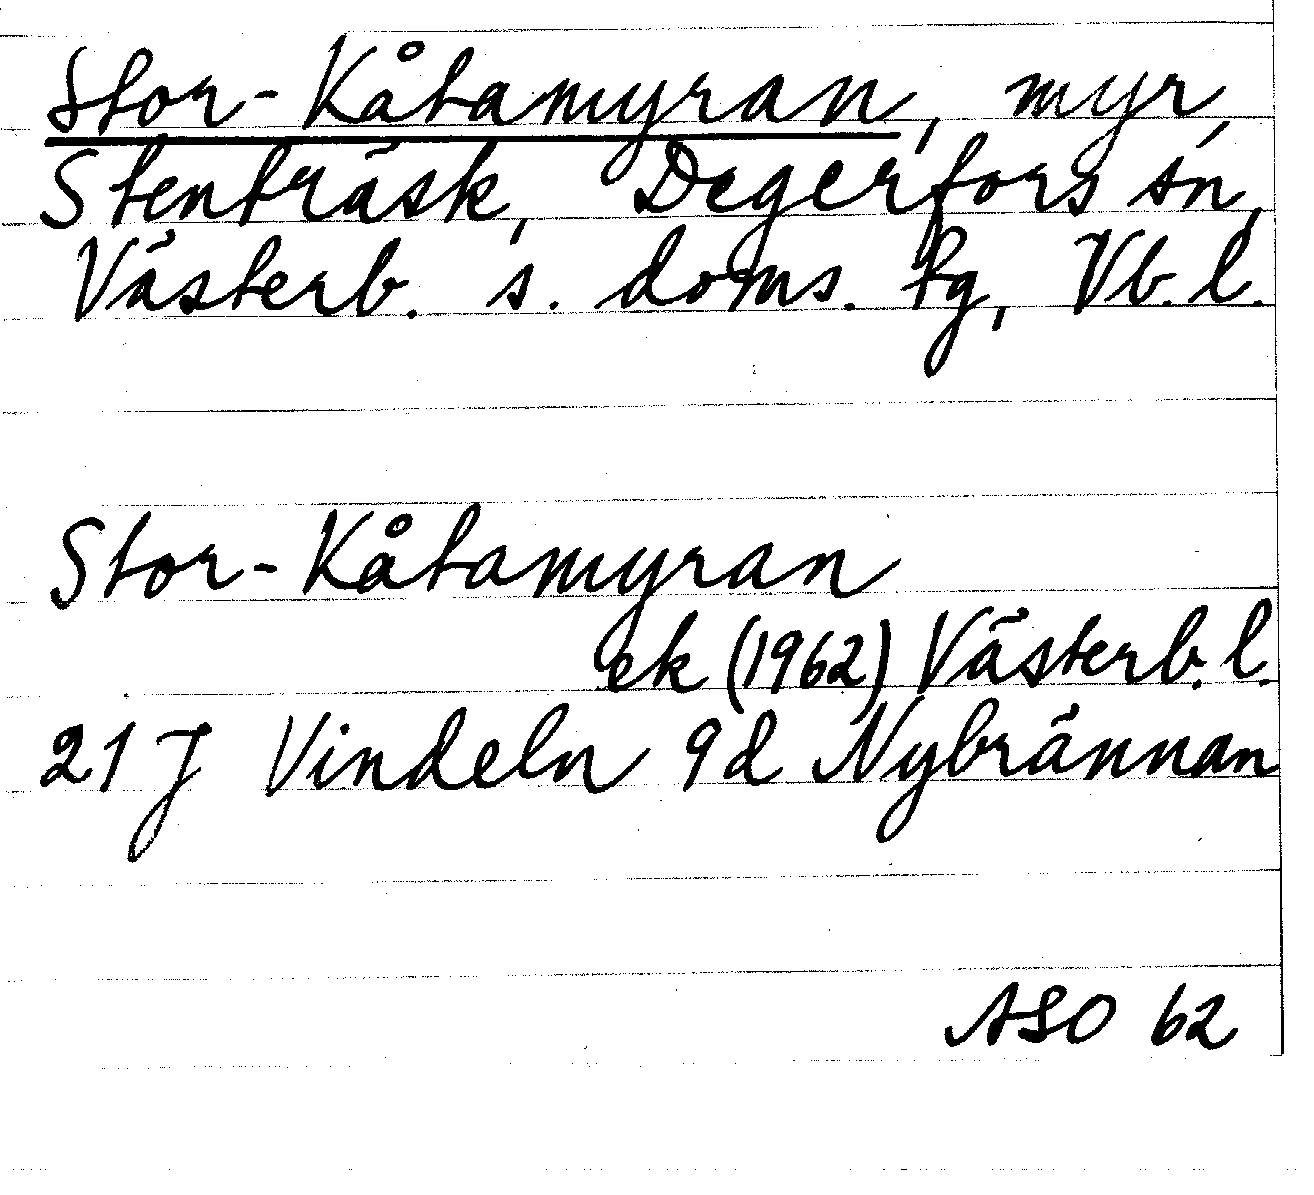 Stor-Kåtamyran, myr,
Stenträsk, Degerfors sn,
Västerb. s. doms. tg, Vb. l.
Stor-Kåtamyran
ek (1962) Västerb. l.
21 J Vindeln 9d Nybrännan
ASO 62